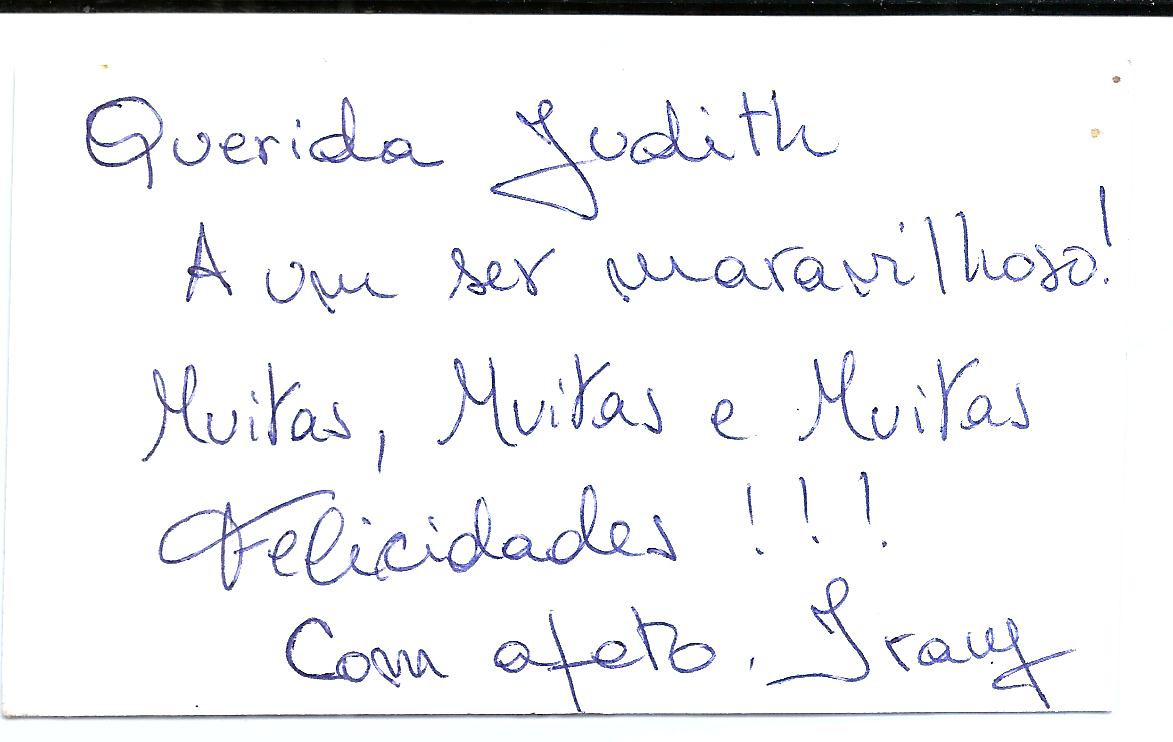 Querida Judith
A um ser maravilhoso!
Muitas, Muitas e Muitas
Felicidades !!!
Com afeto. Irany